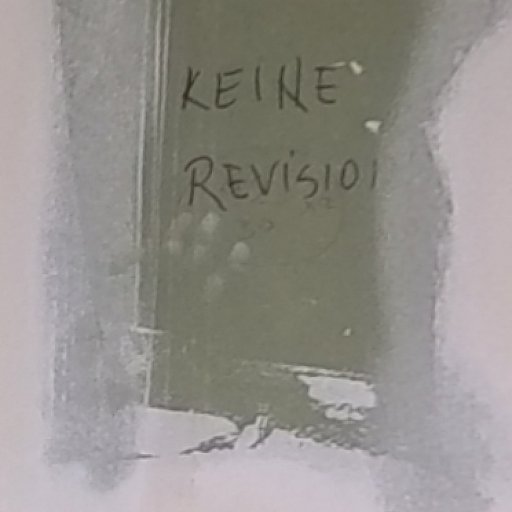 KEINE
REVISIO